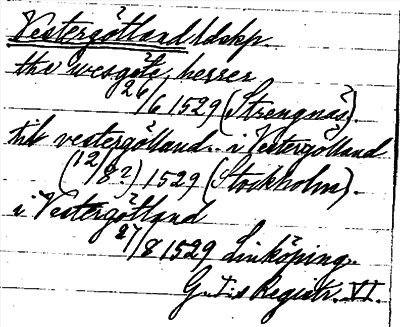 Vestergötland ldskp.
the wesgöte herrer
26/6 1529 (Strengnäs).
till vestergölland.. i Vestergölland
(12/8?) 1529 (Stockholm).
i Vestergötland
27/8 1529 Linköping.
G. I:s Registr. VI.